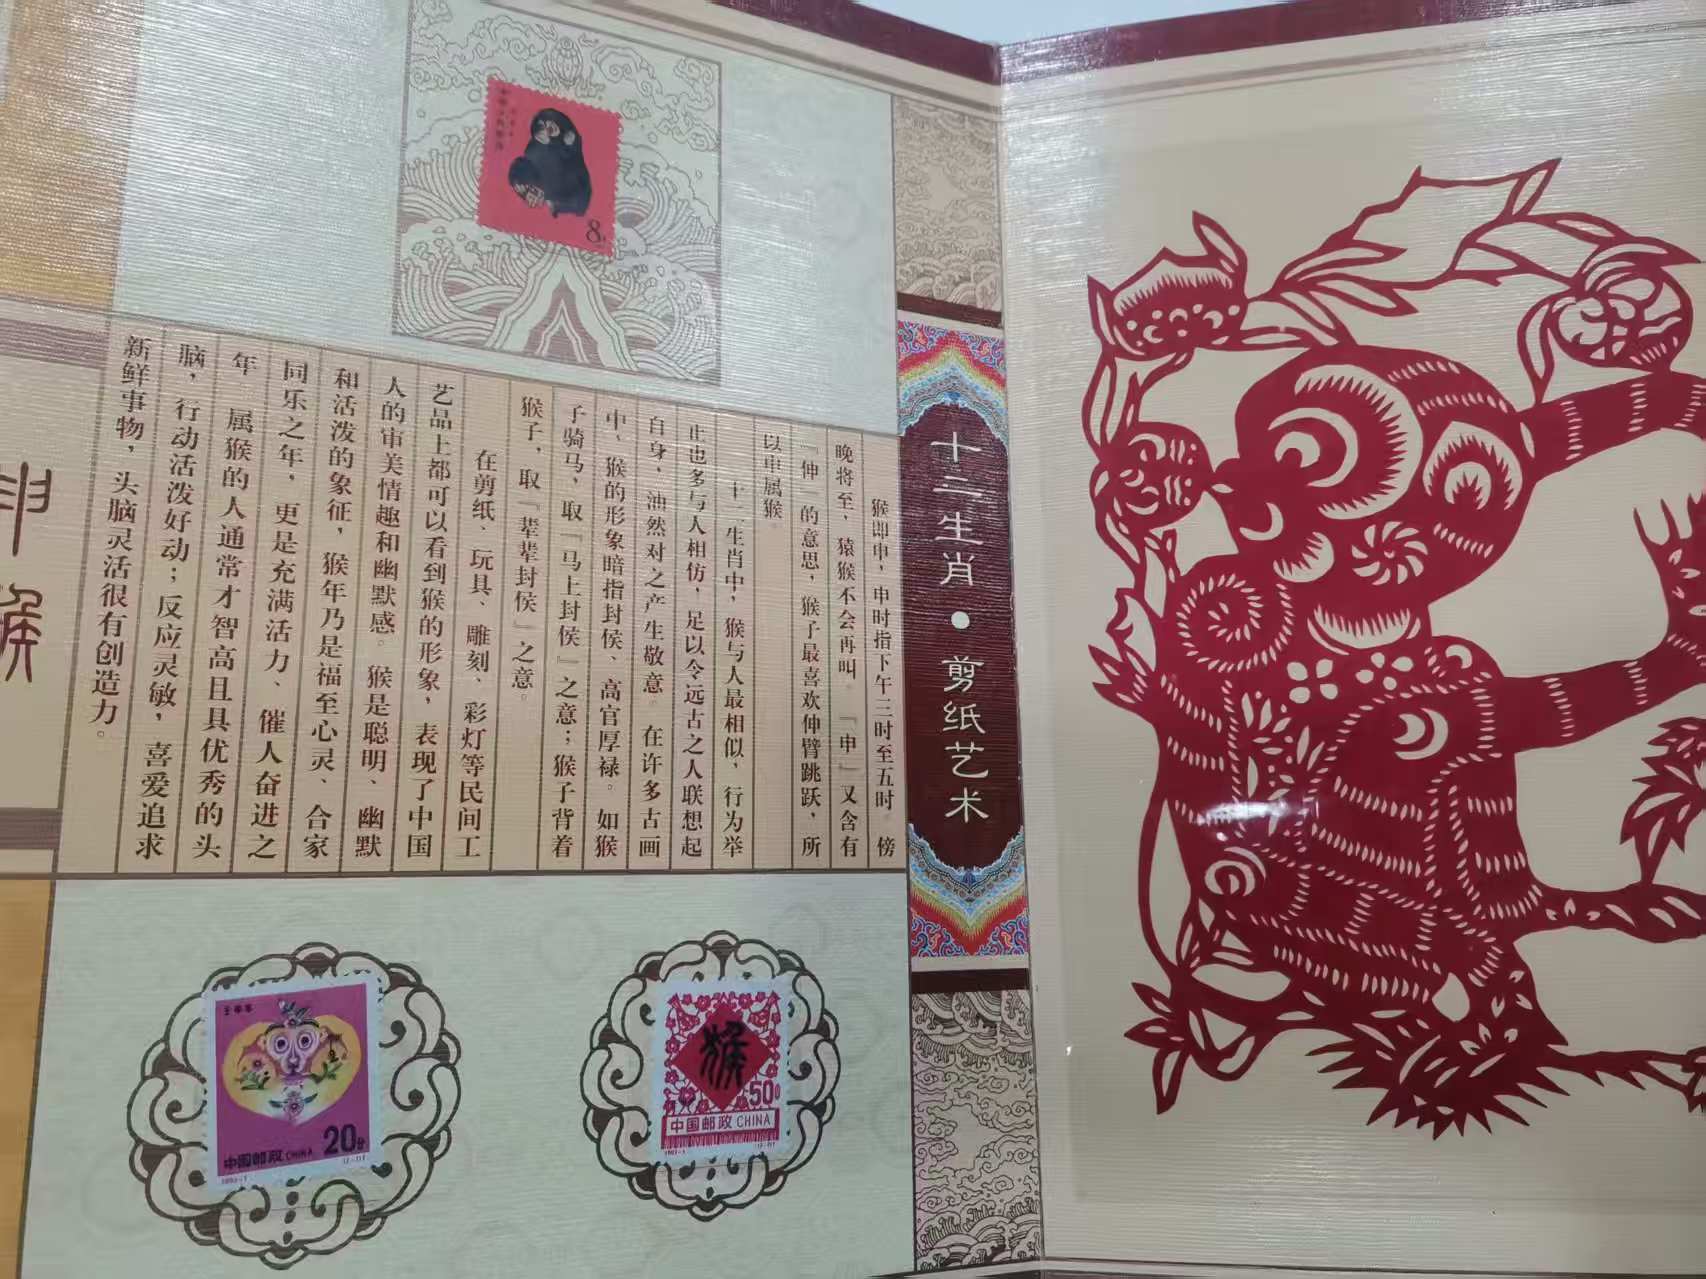 十二生肖·剪纸艺术
猴即申，申时指下午三时至五时。傍
晚将至，猿猴不会再叫。『申』又含有
『伸』的意思，猴子最喜欢伸臂跳跃，所
以申属猴。
十二生肖中，猴与人最相似，行为举
止也多与人相仿，足以令远古之人联想起
自身，油然对之产生敬意。在许多古画
中，猴的形象暗指封侯、高官厚禄。如猴
子骑马，取『马上封侯』之意；猴子背着
猴子，取『辈辈封侯』之意。
在剪纸、玩具、雕刻、彩灯等民间工
艺品上都可以看到猴的形象，表现了中国
人的审美情趣和幽默感。猴是聪明、幽默
和活泼的象征，猴年乃是福至心灵、合家
同乐之年，更是充满活力、催人奋进之
年 属猴的人通常才智高且具优秀的头
脑，行动活泼好动；反应灵敏，喜爱追求
新鲜事物，头脑灵活很有创造力。
申猴
8分
壬申年
20分
中国邮政 CHINA
猴
50分
中国邮政 CHINA